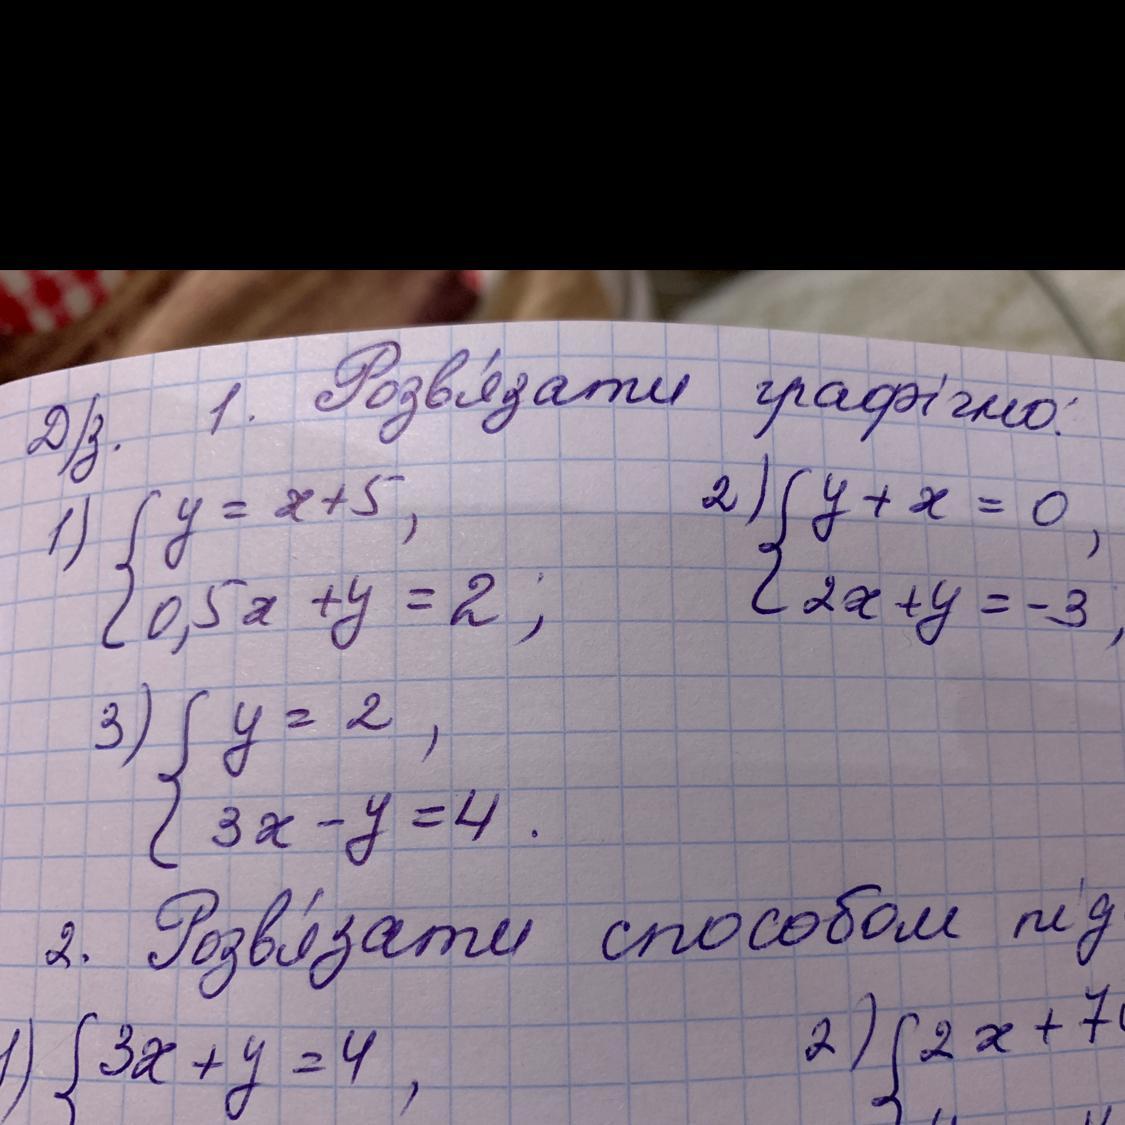 Д/з. 1. Розв'язати графічно:
1) { y = x+5, 2) { y + x = 0,
0,5x + y = 2; 2x+y = -3;
3) { y = 2,
3x - y = 4.
2. Розв'язати способом під
1) { 3x + y = 4, 2) { 2x + 7